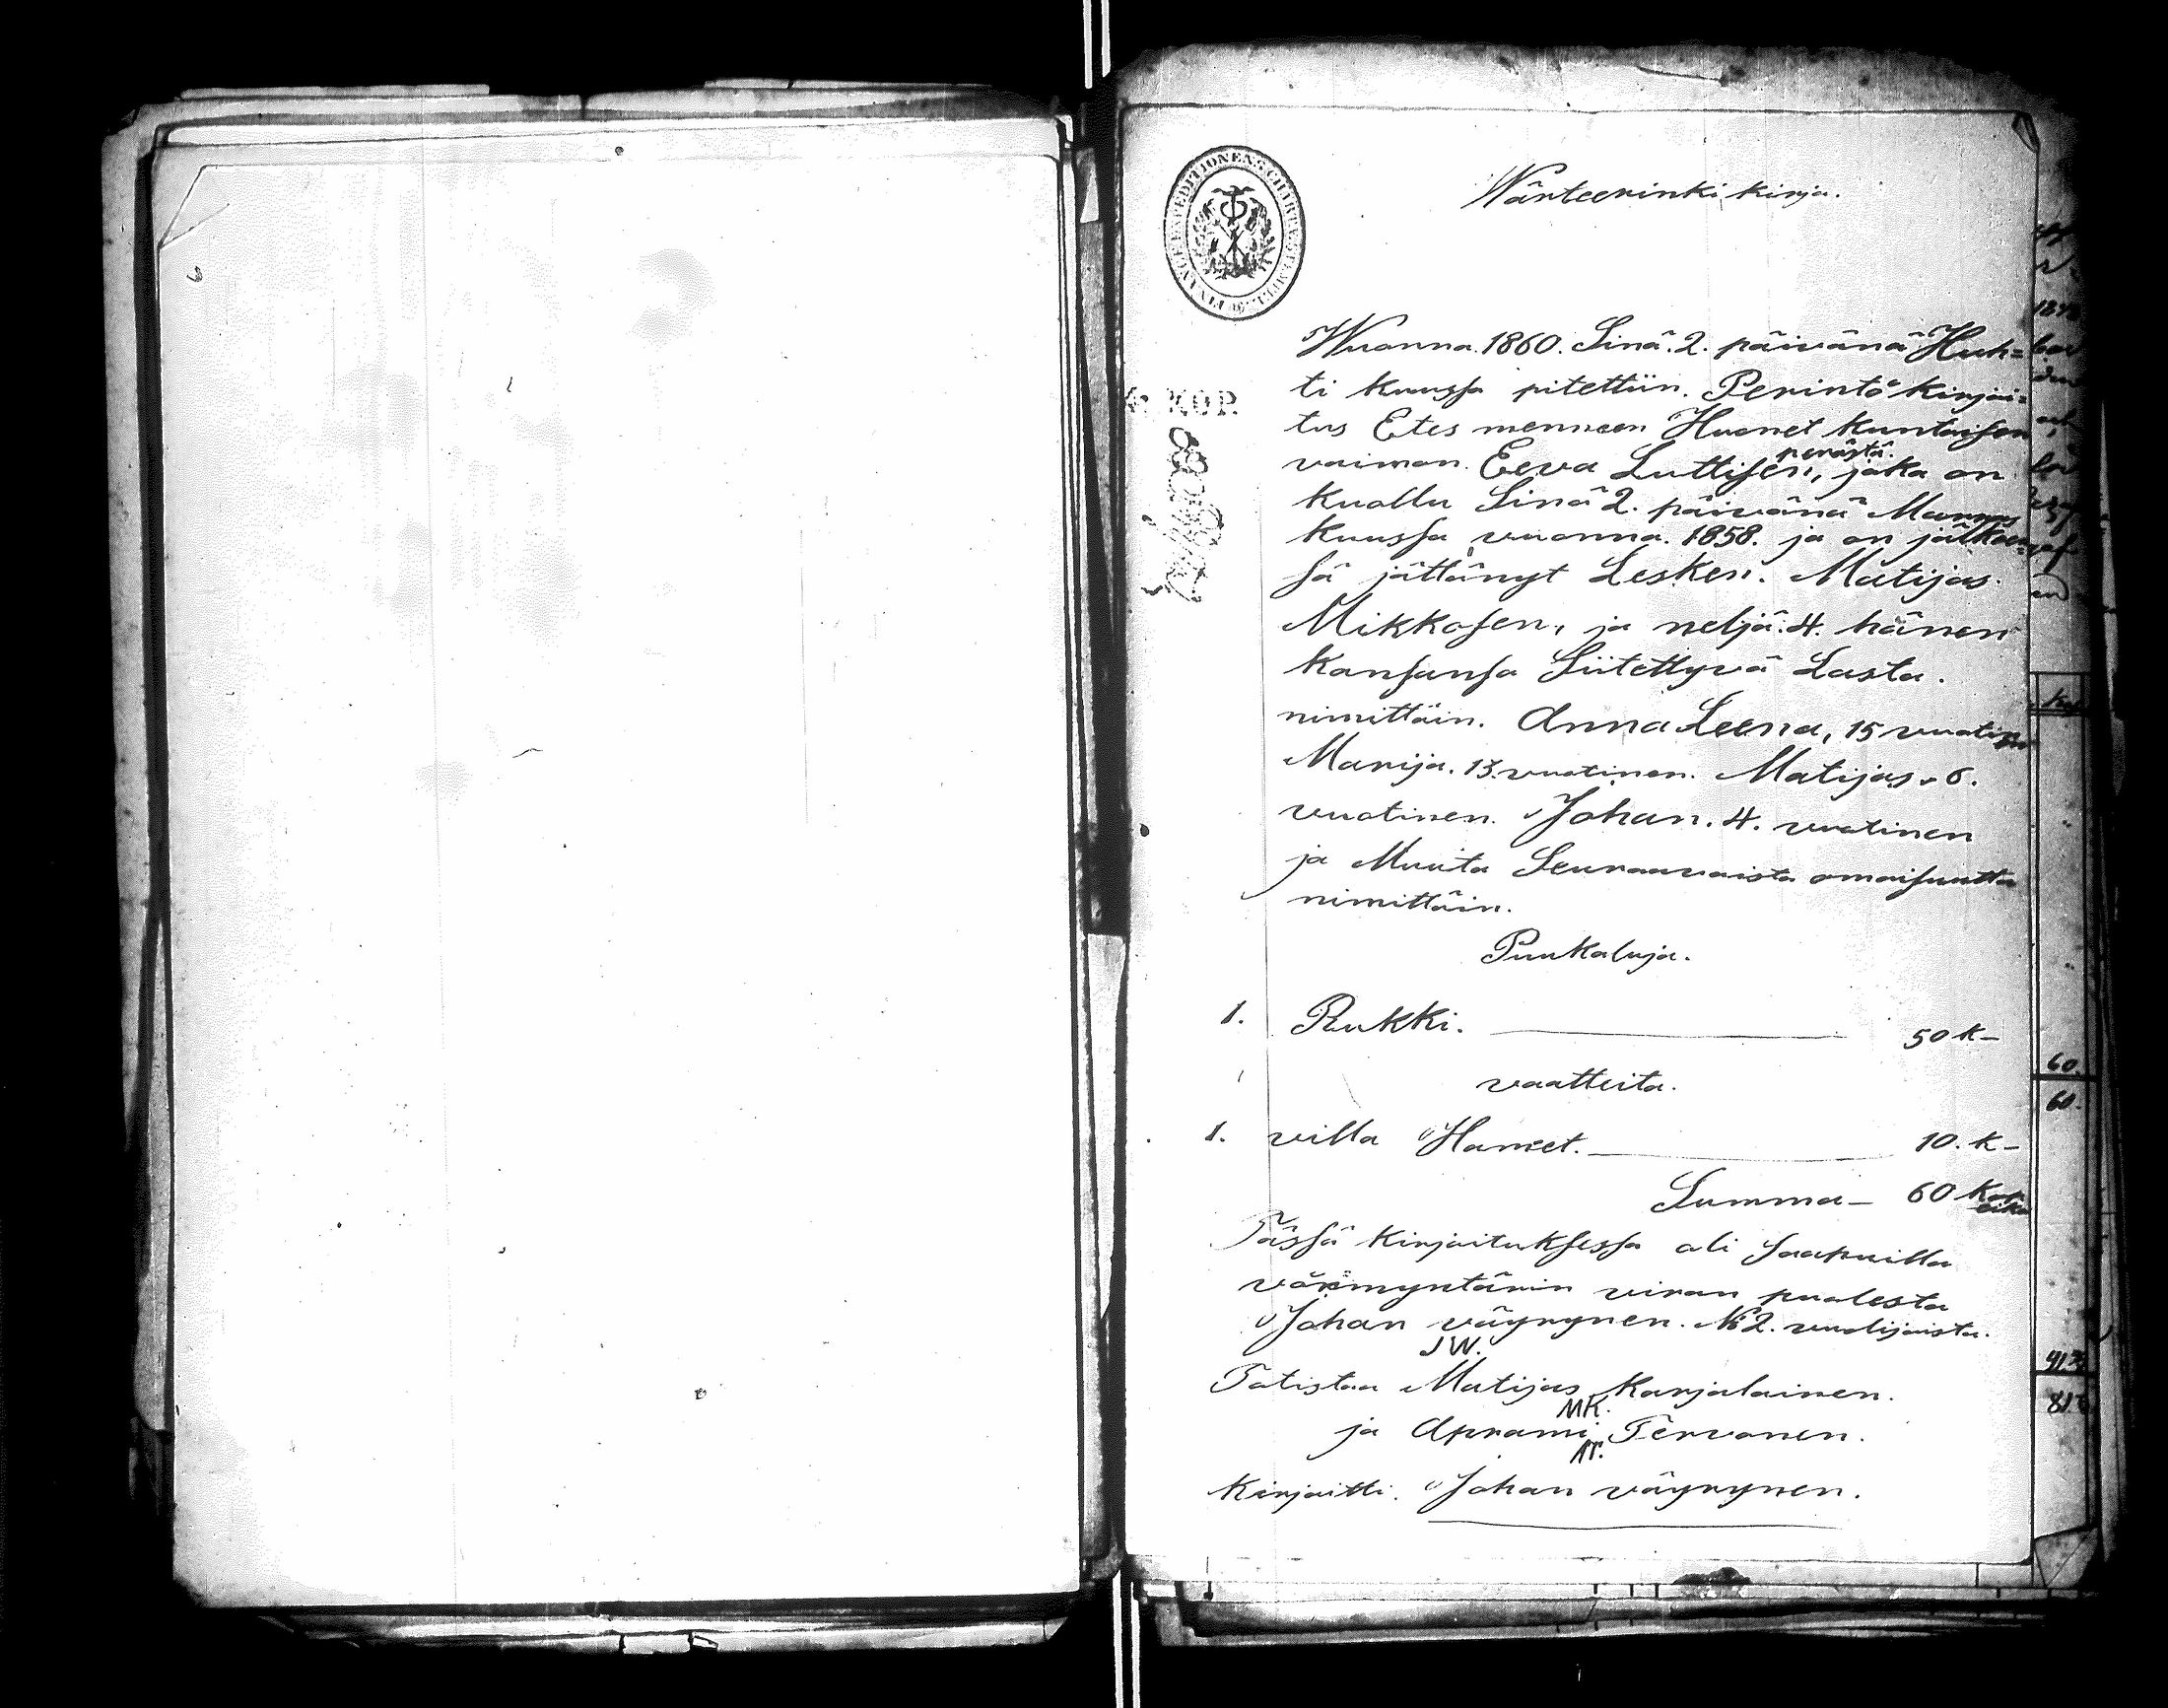 Wärteerinki kirja.
FINANCE EXPEDITIONENS CHARTÆ STEMPEL
Wuonna. 1860. Sinä. 2. päivänä Huh=
ti kuussa pitettiin. Perintö kirjoi=
4 KOP.
tus Etes menneen Huonet kuntaisen
perästä.
vaimon. Eeva Luttisen, joka on
kuollu Sinä 2. päivänä Marras
kuussa vuonna. 1858. ja on jälkeen=
sä jättänyt Lesken. Matijas.
Mikkosen, ja neljä. 4. hänen
kansansa Siitettyvä Lasta.
nimittäin. Anna Leena, 15 vuotinen
Marija. 13. vuotinen. Matijas. 6.
vuotinen. Johan. 4. vuotinen
ja Muuta Seuraavaista omaisuutta
nimittäin.
Puukaluja.
1. Rukki. 50 k–
vaatteita.
1. villa Hamet. 10. k–
Summa– 60 kopeika
Tässä kirjoituksessa oli saapuilla
värimyntärin viran puolesta
Johan väyrynen. No 2. vuolijoista.
JW.
Totistaa Matijas Karjalainen.
MK.
ja Aprami Tervonen.
AT.
Kirjoitti. Johan väyrynen.
60.
60.